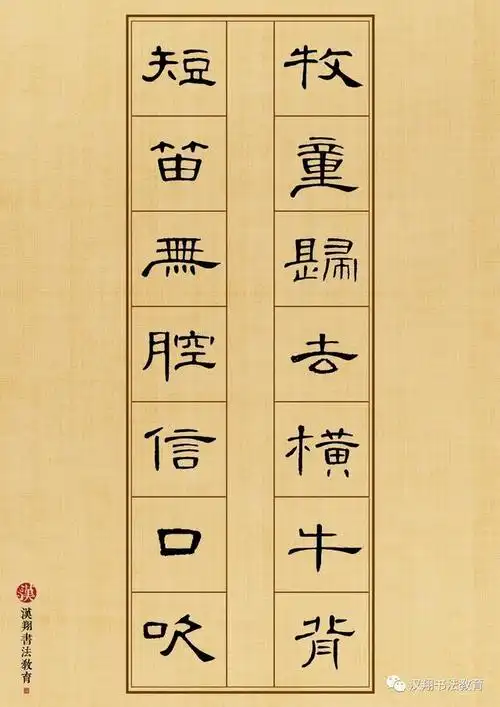 牧童歸去橫牛背
短笛無腔信口吹
漢
漢翔書法教育
汉翔书法教育